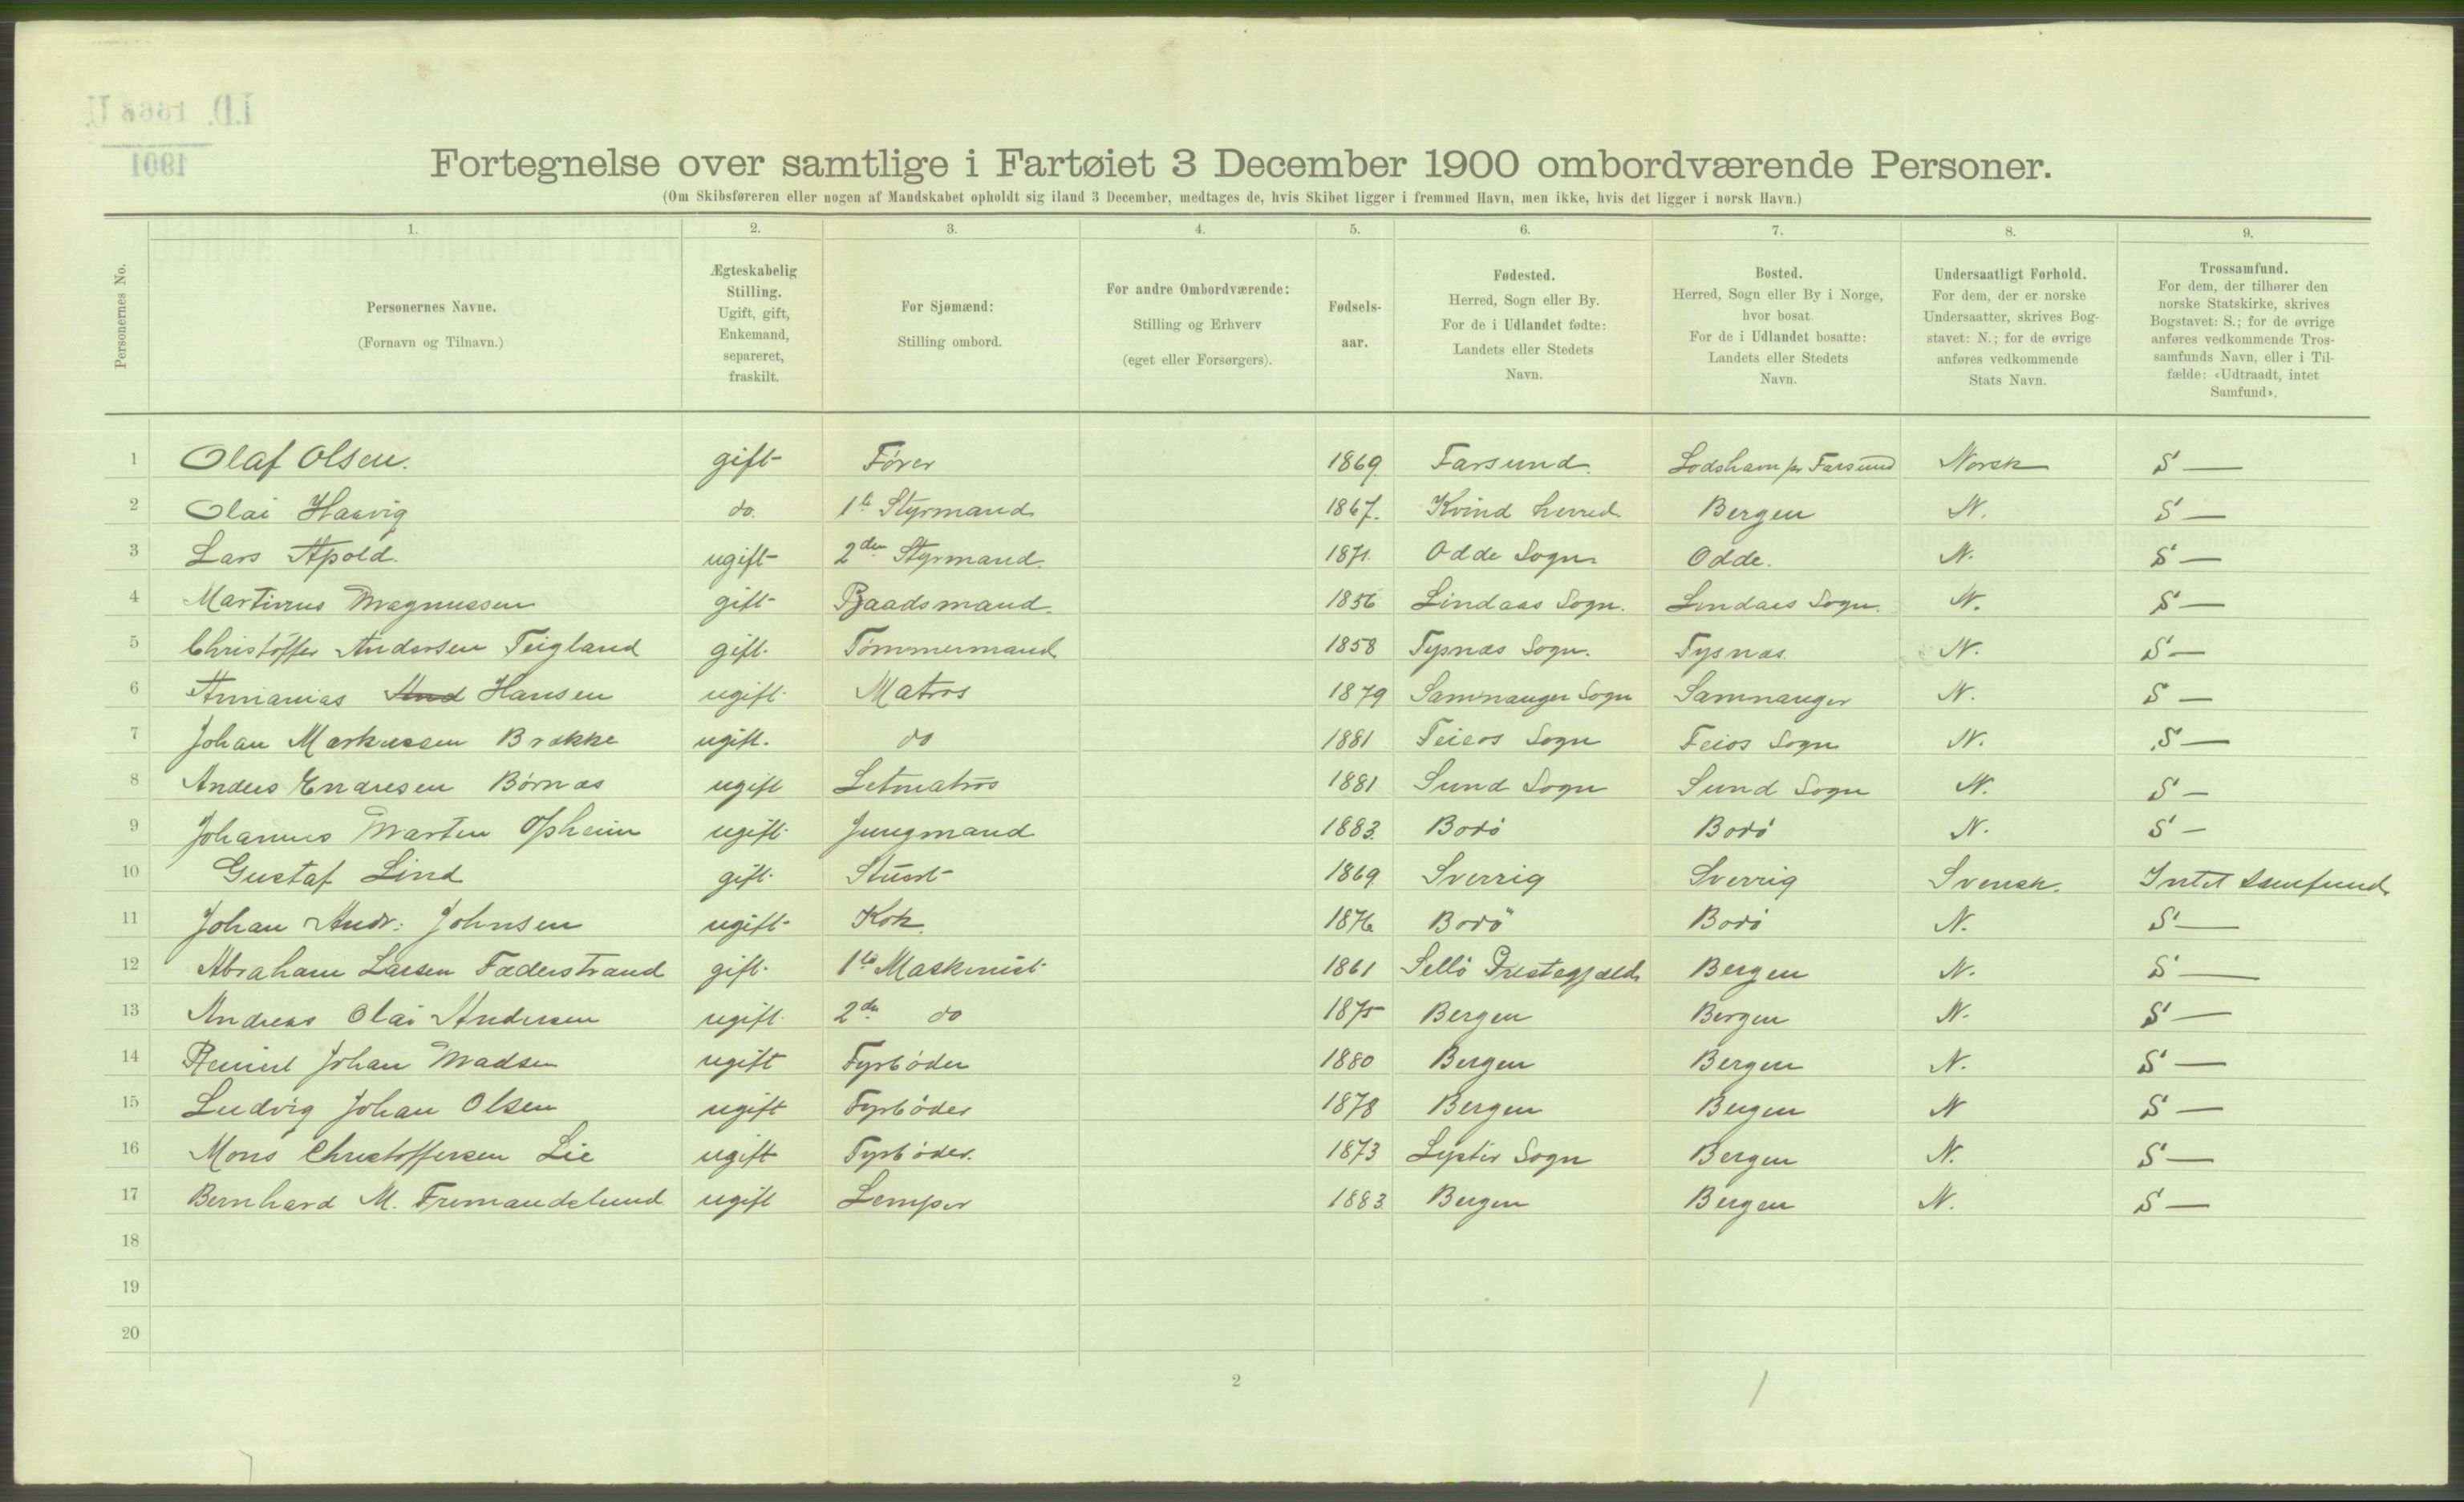 I.D. 1668 U.
1901
Fortegnelse over samtlige i Fartøiet 3 December 1900 ombordværende Personer.
(Om Skibsføreren eller nogen af Mandskabet opholdt sig iland 3 December, medtages de, hvis Skibet ligger i fremmed Havn, men ikke, hvis det ligger i norsk Havn.)
Personernes No.
1. 2. 3. 4. 5. 6. 7. 8. 9.
Personernes Navne.
(Fornavn og Tilnavn.)
Ægteskabelig
Stilling.
Ugift, gift,
Enkemand,
separeret,
fraskilt.
For Sjømænd:
Stilling ombord.
For andre Ombordværende:
Stilling og Erhverv
(eget eller Forsørgers).
Fødsels-
aar.
Fødested.
Herred, Sogn eller By.
For de i Udlandet fødte:
Landets eller Stedets
Navn.
Bosted.
Herred, Sogn eller By i Norge,
hvor bosat.
For de i Udlandet bosatte:
Landets eller Stedets
Navn.
Undersaatligt Forhold.
For dem, der er norske
Undersaatter, skrives Bog-
stavet: N.; for de øvrige
anføres vedkommende
Stats Navn.
Trossamfund.
For dem, der tilhører den
norske Statskirke, skrives
Bogstavet: S.; for de øvrige
anføres vedkommende Tros-
samfunds Navn, eller i Til-
fælde: «Udtraadt, intet
Samfund».
1 Olaf Olsen. gift Fører 1869 Farsund. Lodshavn pr Farsund Norsk S —
2 Olai Haavig do. 1ste Styrmand 1867. Kvind herred Bergen N. S —
3 Lars Apold. ugift 2den Styrmand. 1871. Odde Sogn Odde. N. S —
4 Martinus Magnussen gift Baadsmand. 1856 Lindaas Sogn. Lindaas Sogn. N. S —
5 Christoffer Andersen Teigland gift. Tømmermand 1858 Tysnæs Sogn. Tysnæs. N. S —
6 Annanias And Hansen ugift. Matros 1879 Samnanger Sogn Samnanger N. S —
7 Johan Markussen Brække ugift. do 1881 Feios Sogn Feios Sogn N. S —
8 Anders Endresen Børnæs ugift Letmatros 1881 Sund Sogn Sund Sogn N. S —
9 Johannes Marten Opheim ugift. Jungmand 1883. Bodö Bodö N. S —
10 Gustaf Lind gift. Stuert 1869 Sverrig Sverrig Svensk. Intet Samfund
11 Johan Andr: Johnsen ugift. Kok 1876 Bodö Bodö N. S —
12 Abraham Larsen Fæderstrand gift. 1ste Maskinist 1861 Sellö Prestegjæld Bergen N. S —
13 Andreas Olai Andersen ugift. 2den do 1875 Bergen Bergen N. S —
14 Johan Madsen ugift Fyrböder 1880 Bergen Bergen N. S —
15 Ludvig Johan Olsen ugift Fyrböder 1878 Bergen Bergen N S —
16 Mons Christoffersen Lie ugift Fyrböder. 1873 Lyster Sogn Bergen N. S —
17 Bernhard M. Fremandslund ugift Lemper 1883. Bergen Bergen N. S —
18
19
20
2